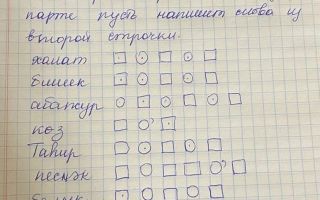 парте пусть напишет слова из
второй строчки.
халат
блшек
абажур
көз
Таһир
песнәк